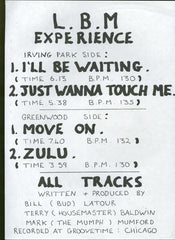 L.B.M
EXPERIENCE
IRVING PARK SIDE:
1. I'LL BE WAITING.
( TIME 6.13 B.P.M. 130 )
2. JUST WANNA TOUCH ME.
( TIME 5.38 B.P.M. 135 )
GREENWOOD SIDE:
1. MOVE ON.
( TIME 7.60 B.P.M 132 )
2. ZULU.
( TIME 3.59 B.P.M. 130 )
ALL TRACKS
WRITTEN + PRODUCED BY
BILL ( BUD ) LATOUR
TERRY ( HOUSEMASTER ) BALDWIN
MARK ( THE MUMPH ) MUMFORD
RECORDED AT GROOVETIME : CHICAGO